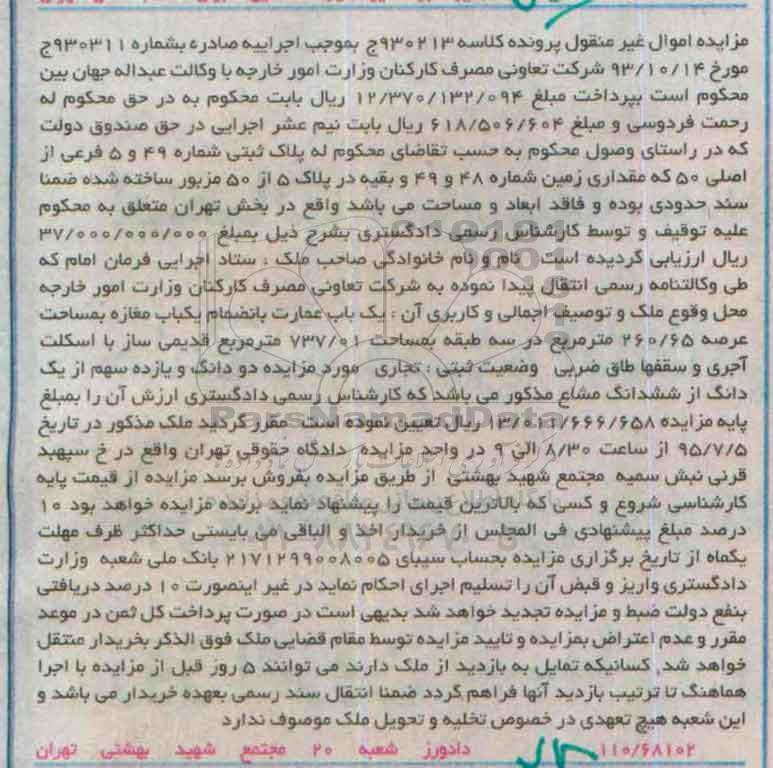 مزایده اموال غیر منقول پرونده کلاسه ۹۳۰۲۱۳ج بموجب اجراییه صادره بشماره ۹۳۰۳۱۱ج
مورخ ۹۳/۱۰/۱۴ شرکت تعاونی مصرف کارکنان وزارت امور خارجه با وکالت عبداله جهان بین
محکوم است بپرداخت مبلغ ۱۲/۳۷۰/۱۳۲/۰۹۴ ریال بابت محکوم به در حق محکوم له
رحمت فردوسی و مبلغ ۶۱۸/۵۰۶/۶۰۴ ریال بابت نیم عشر اجرایی در حق صندوق دولت
که در راستای وصول محکوم به حسب تقاضای محکوم له پلاک ثبتی شماره ۴۹ و ۵ فرعی از
اصلی ۵۰ که مقداری زمین شماره ۴۸ و ۴۹ و بقیه در پلاک ۵ از ۵۰ مزبور ساخته شده ضمنا
سند حدودی بوده و فاقد ابعاد و مساحت می باشد واقع در بخش تهران متعلق به محکوم
علیه توقیف و توسط کارشناس رسمی دادگستری بشرح ذیل بمبلغ ۳۷/۰۰۰/۰۰۰/۰۰۰
ریال ارزیابی گردیده است نام و نام خانوادگی صاحب ملک : ستاد اجرایی فرمان امام که
طی وکالتنامه رسمی انتقال پیدا نموده به شرکت تعاونی مصرف کارکنان وزارت امور خارجه
محل وقوع ملک و توصیف اجمالی و کاربری آن : یک باب عمارت بانضمام یکباب مغازه بمساحت
عرصه ۲۶۰/۶۵ مترمربع در سه طبقه بمساحت ۷۳۷/۰۱ مترمربع قدیمی ساز با اسکلت
آجری و سقفها طاق ضربی وضعیت ثبتی : تجاری مورد مزایده دو دانگ و یازده سهم از یک
دانگ از ششدانگ مشاع مذکور می باشد که کارشناس رسمی دادگستری ارزش آن را بمبلغ
پایه مزایده ۱۳/۰۱۱/۶۶۶/۶۵۸ ریال تعیین نموده است مقرر گردید ملک مذکور در تاریخ
۹۵/۷/۵ از ساعت ۸/۳۰ الی ۹ در واحد مزایده دادگاه حقوقی تهران واقع در خ سپهبد
قرنی نبش سمیه مجتمع شهید بهشتی از طریق مزایده بفروش برسد مزایده از قیمت پایه
کارشناسی شروع و کسی که بالاترین قیمت را پیشنهاد نماید برنده مزایده خواهد بود ۱۰
درصد مبلغ پیشنهادی فی المجلس از خریدار اخذ و الباقی می بایستی حداکثر ظرف مهلت
یکماه از تاریخ برگزاری مزایده بحساب سیبای ۲۱۷۱۲۹۹۰۰۸۰۰۵ بانک ملی شعبه وزارت
دادگستری واریز و قبض آن را تسلیم اجرای احکام نماید در غیر اینصورت ۱۰ درصد دریافتی
بنفع دولت ضبط و مزایده تجدید خواهد شد بدیهی است در صورت پرداخت کل ثمن در موعد
مقرر و عدم اعتراض بمزایده و تایید مزایده توسط مقام قضایی ملک فوق الذکر بخریدار منتقل
خواهد شد, کسانیکه تمایل به بازدید از ملک دارند می توانند ۵ روز قبل از مزایده با اجرا
هماهنگ تا ترتیب بازدید آنها فراهم گردد ضمنا انتقال سند رسمی بعهده خریدار می باشد و
این شعبه هیچ تعهدی در خصوص تخلیه و تحویل ملک موصوف ندارد
۱۱۰/۶۸۱۰۲ دادورز شعبه ۲۰ مجتمع شهید بهشتی تهران
ParsNamadData